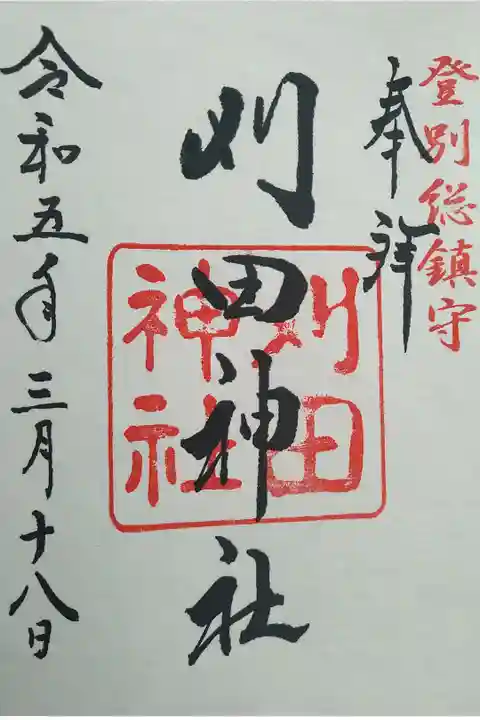 登別総鎮守
奉拝
刈田神社
刈田
神社
令和五年三月十八日